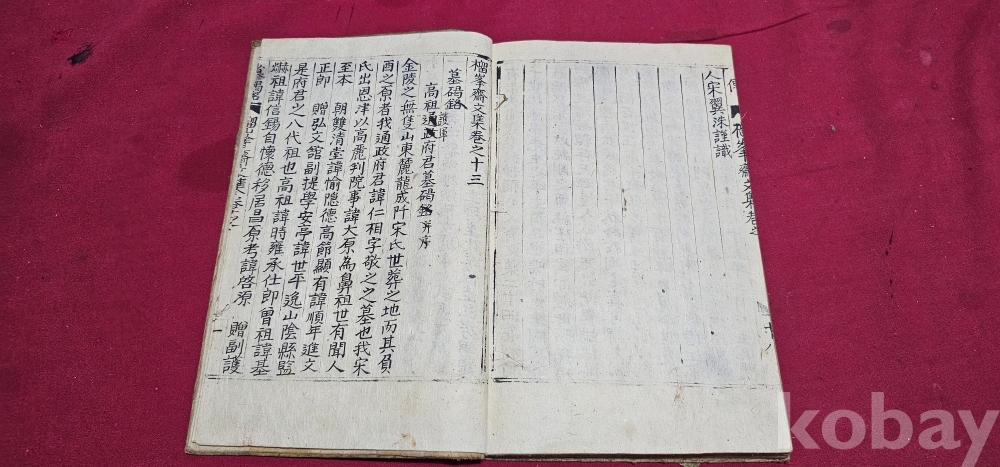 榴峯齋文集卷之
人宋翼洙謹識
榴峯齋文集卷之十三
墓碣銘
高祖通政府君墓碣銘 并序
護軍
金陵之無隻山東麓龍成阡宋氏世葬之地而其負
酉之原者我通政府君諱仁相字敬之之墓也我宋
氏出恩津以高麗判院事諱大原為鼻祖世有聞人
至本 朝雙清堂諱愉隱德高節顯有諱順年進文
正郎 贈弘文館副提學安亭諱世平逸山陰縣監
是府君之八代祖也高祖諱時雍承仕郎曾祖諱基
祖諱信錫自懷德移居昌原考諱啓源 贈副護
一
kobay